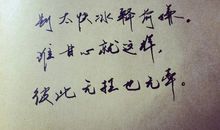 别太快冰释前嫌。
谁甘心就这样，
彼此无挂也无牵。